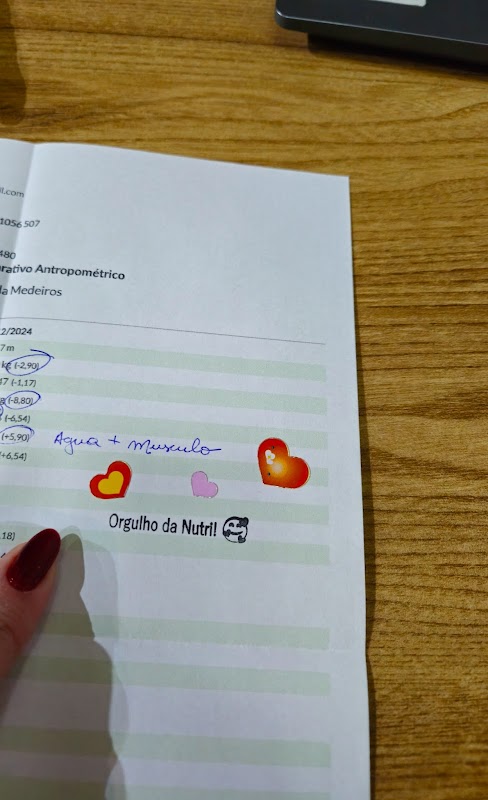 l.com
1056507
480
rativo Antropométrico
la Medeiros
2/2024
7 m
kg (-2,90)
17 (-1,17)
g (-8,80)
(-6,54)
(+5,90) Agua + Musculo
(+6,54)
Orgulho da Nutri!
,18)